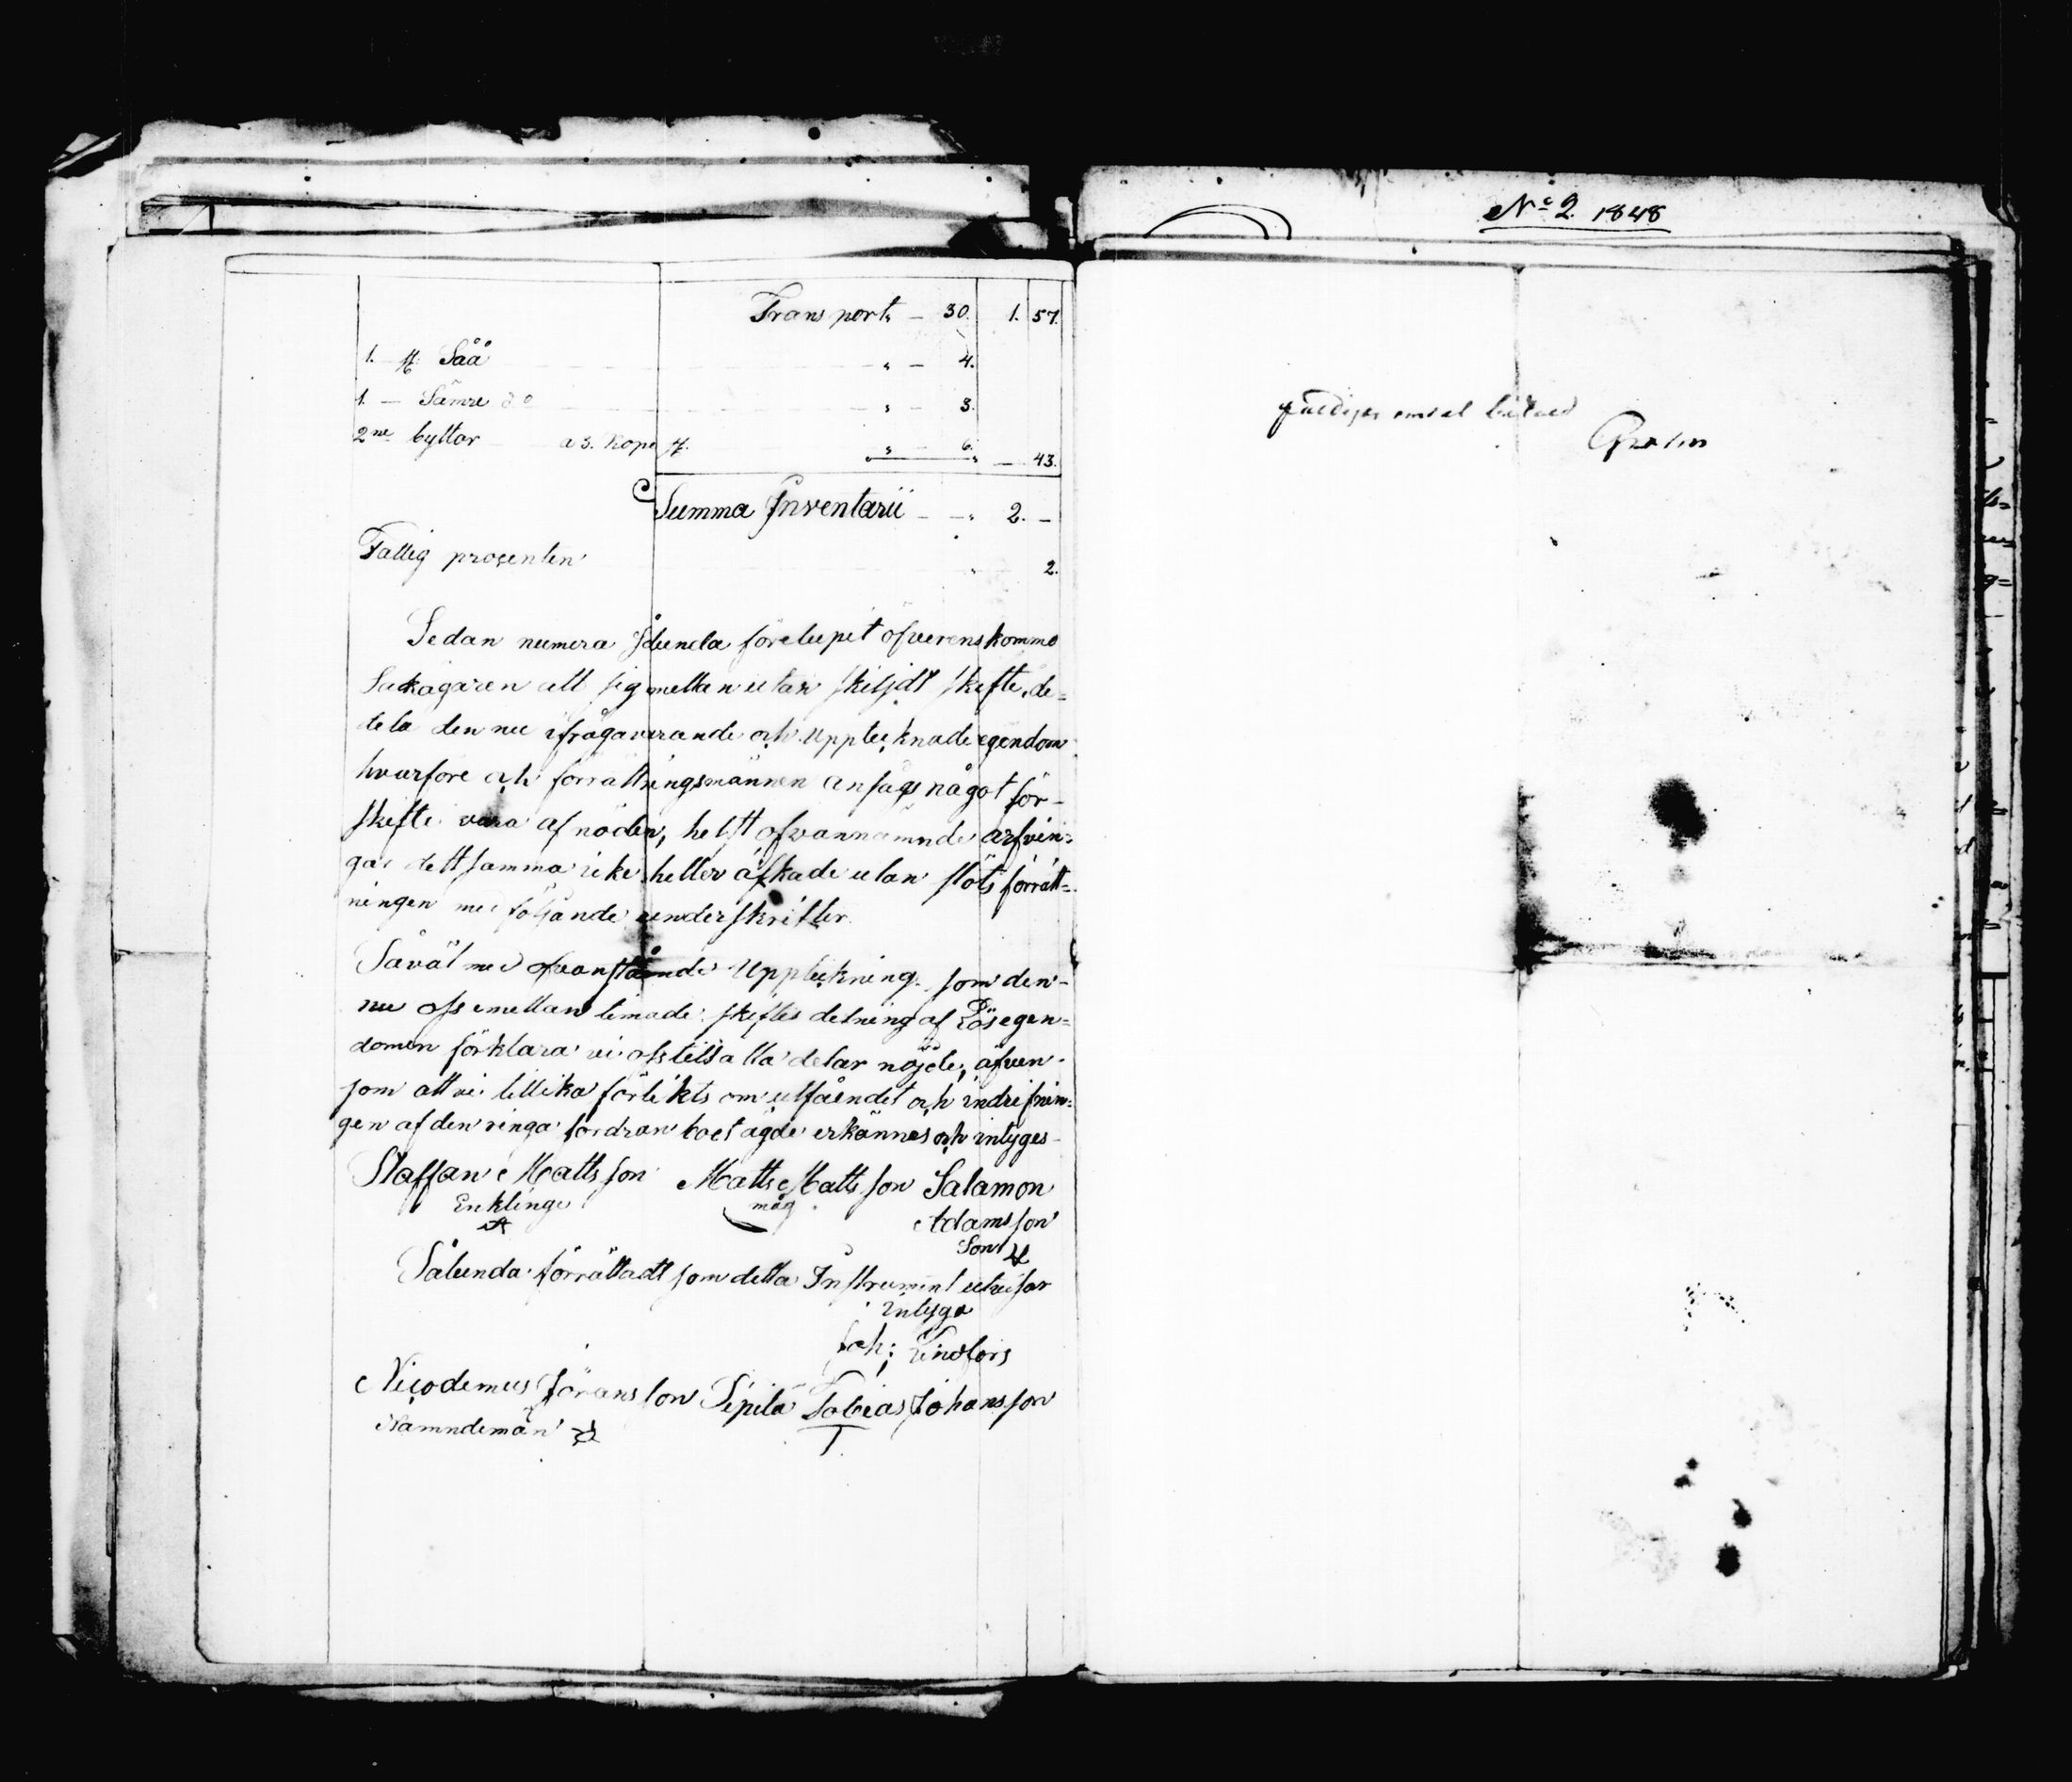 Transport - 30. 1. 57.
1. st Såå " - 4.
1. - Sämre do " - 3.
2ne byttor a 3. Kop st. " - 6. " - 43.
Summa Inventarii - " 2. -
Fattig procenten " 2.
Sedan numera sålunda förelupit öfverenskommo
Sakägaren att sig mellan utan skiljdt skifte, de=
dela den nu ifrågavarande och uppteknade egendom
hvarföre och förrättningsmännen ansågs något för-
skifte vara af nöden, helst ofvannämnde arfvin=
gar dettsamma icke heller äskade utan slöts förrätt=
ningen med följande underskrifter.
Såväl med ofvanstående Uppteckning som den-
nu oss emellan timade skiftes delning af Lösegen=
domen förklara vi oss till alla delar nöjde, äfven-
som att vi tillika förlikts om utfåendet och indrifnin=
gen af den ringa fordran boet ägde erkännes och intyges-
Staffan Matts son Matts Matts son Salamon
Enkling måg Adams son
Son
Sålunda förrättadt som detta Instrument utvisar
intyga
Joh: Lindfors
Nicodemus Jöransson Sipilä Tobias Johansson
Nämndeman
No 2. 1848